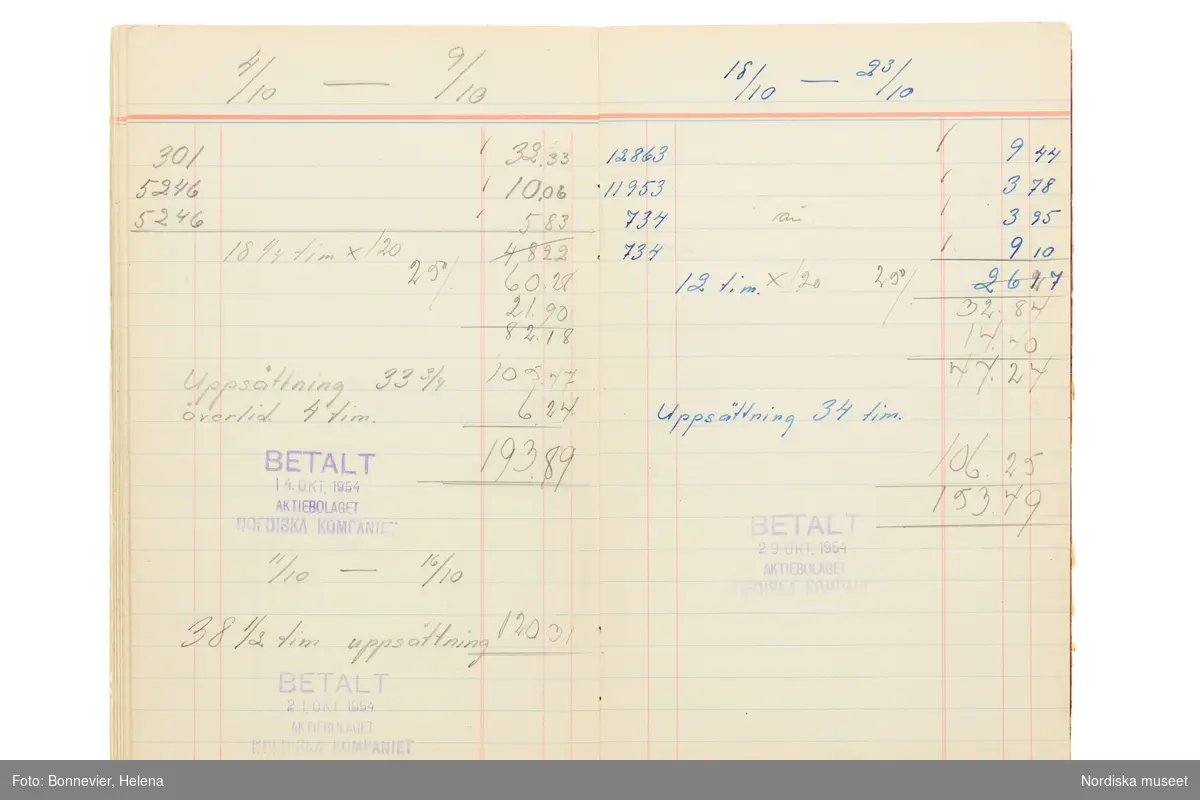 4/10 — 9/10
301 32.33
5246 10,06
5246 5 83
18 1/4 tim x 120 4822
25% 60.28
21.90
82.18
Uppsättning 33 3/4 105.47
övertid 4 tim. 6.24
193.89
BETALT
14. OKT. 1954
AKTIEBOLAGET
NORDISKA KOMPANIET
11/10 — 16/10
38 1/2 tim uppsättning 120 31
BETALT
21. OKT. 1954
AKTIEBOLAGET
NORDISKA KOMPANIET
18/10 — 23/10
12863 9 44
11953 3 78
734 3 95
734 9 10
12 tim. x 120 25% 26 27
32.84
14.40
47.24
Uppsättning 34 tim.
106.25
153.49
BETALT
29. OKT. 1954
AKTIEBOLAGET
NORDISKA KOMPANIET
Foto: Bonnevier, Helena
Nordiska museet